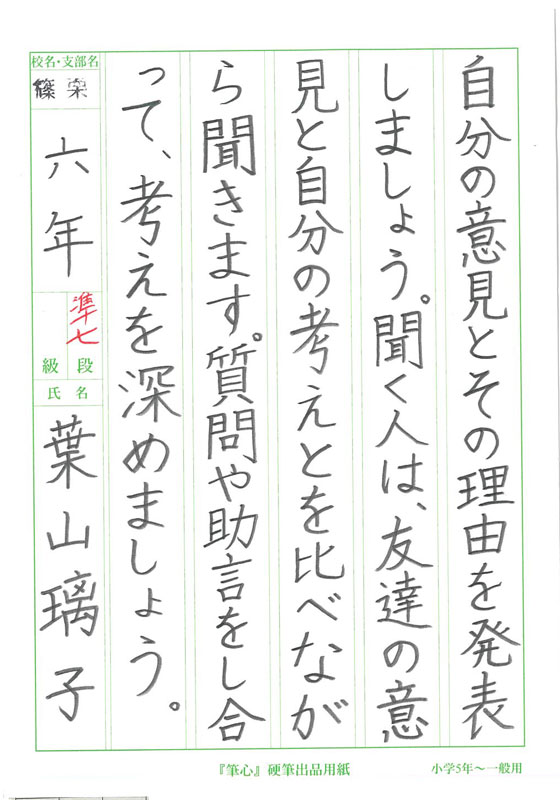 自分の意見とその理由を発表
しましょう。聞く人は、友達の意
見と自分の考えとを比べなが
ら聞きます。質問や助言をし合
って、考えを深めましょう。
校名・支部名
篠栗
六年
準七
段
級
氏名
葉山璃子
『筆心』硬筆出品用紙
小学5年〜一般用